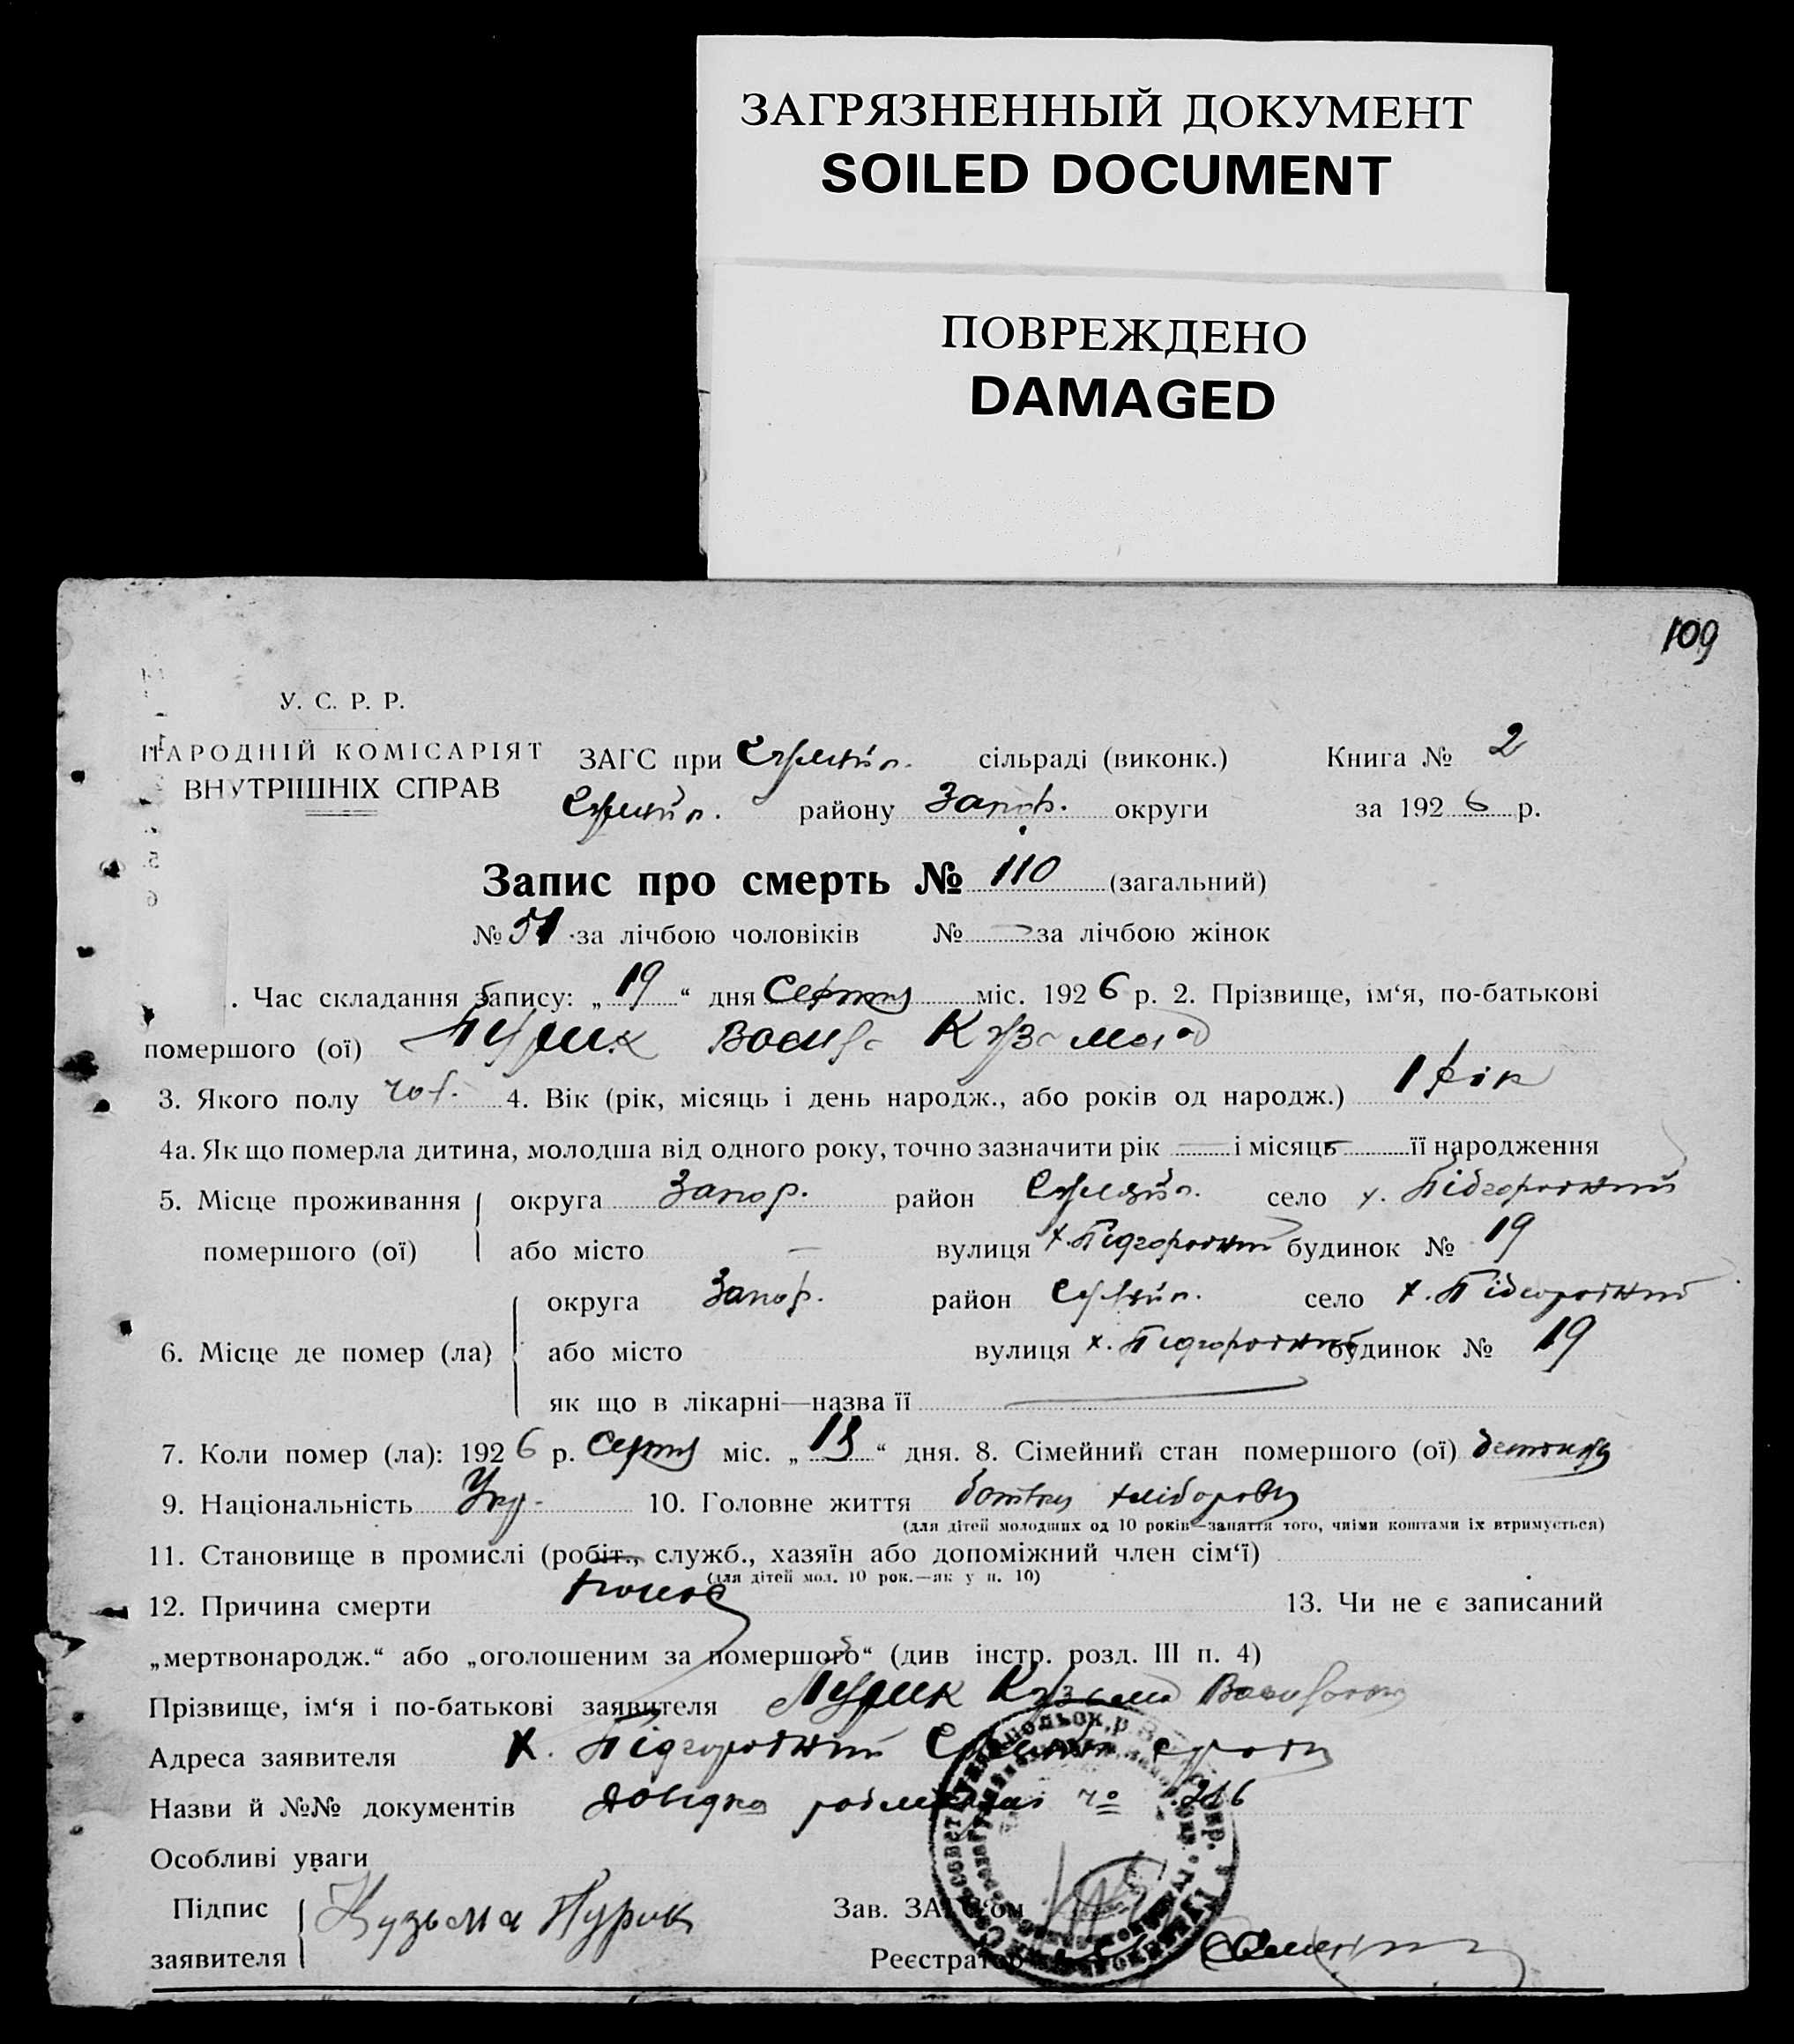 ЗАГРЯЗНЕННЫЙ ДОКУМЕНТ
SOILED DOCUMENT
ПОВРЕЖДЕНО
DAMAGED
109
У. С. Р. Р.
НАРОДНІЙ КОМІСАРІЯТ
ВНУТРІШНІХ СПРАВ
ЗАГС при сільраді (виконк.) Книга № 2
району Запор. округи за 1926 р.
Запис про смерть № 110 (загальний)
№ 51 за лічбою чоловіків № — за лічбою жінок
. Час складання запису: „ 19 “ дня Серпня міс. 1926 р. 2. Прізвище, ім‘я, по-батькові
помершого (ої) Пурик
3. Якого полу чол. 4. Вік (рік, місяць і день народж., або років од народж.) 1 рік
4а. Як що померла дитина, молодша від одного року, точно зазначити рік — і місяць — її народження
5. Місце проживання округа Запор. район село х. Підгородний
помершого (ої) або місто — вулиця х. Підгородний будинок № 19
округа Запор. район село х. Підгородний
6. Місце де помер (ла) або місто вулиця х. Підгородний будинок № 19
як що в лікарні—назва її —
7. Коли помер (ла): 1926 р. Серпня міс. „ “ дня. 8. Сімейний стан помершого (ої)
9. Національність Укр. 10. Головне життя
(для дітей молодших од 10 років—заняття того, чиїми коштами їх втримується)
11. Становище в промислі (робіт., служб., хазяїн або допоміжний член сім‘ї)
(для дітей мол. 10 рок.—як у п. 10)
12. Причина смерти 13. Чи не є записаний
„мертвонародж.“ або „оголошеним за помершого“ (див інстр. розд. III п. 4)
Прізвище, ім‘я і по-батькові заявителя Пурик Кузьма
Адреса заявителя х. Підгородний
Назви й №№ документів Довідка
Особливі уваги
Підпис заявителя Кузьма Пурик Зав. ЗАГС‘ом
Реєстратор